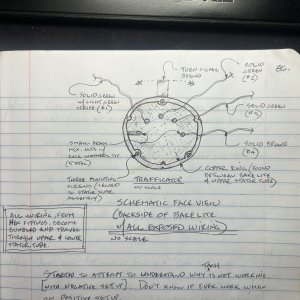 TURN SIGNAL
BEHIND
SOLID
GREEN
(#2)
SOLID GREEN
W/ LIGHT GREEN
(#1)
SOLID
(#3)
SMALL BRASS
HEX NUTS W/
LOCK WASHERS
SOLID BROWN
(#4)
THREE MOUNTING
SCREWS
TO STATOR TUBE
TRAFFICATOR
NO SCALE
COPPER RING (FOUND
BETWEEN BAKELITE
& UPPER STATOR TUBE)
ALL WIRING FROM
HEX FITTINGS BECOME
BUNDLED AND TRAVEL
THROUGH UPPER & LOWER
STATOR TUBE.
SCHEMATIC FACE VIEW
(BACKSIDE OF BAKELITE
W/ ALL EXPOSED WIRING)
NO SCALE
TACH
STARTED TO ATTEMPT TO UNDERSTAND WHY IS NOT WORKING.
[WITH NEGATIVE SETUP]. DON'T KNOW IF EVER WORK WHEN
ON POSITIVE SETUP